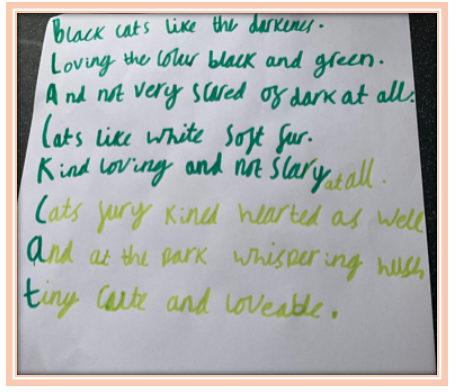 Black cats like the darkenes.
Loving the colour black and green.
And not very scared of dark at all.
Cats like white soft fur.
Kind loving and not scary at all.
Cats fury kined hearted as well
And at the park whispering hush
tiny cute and loveable.